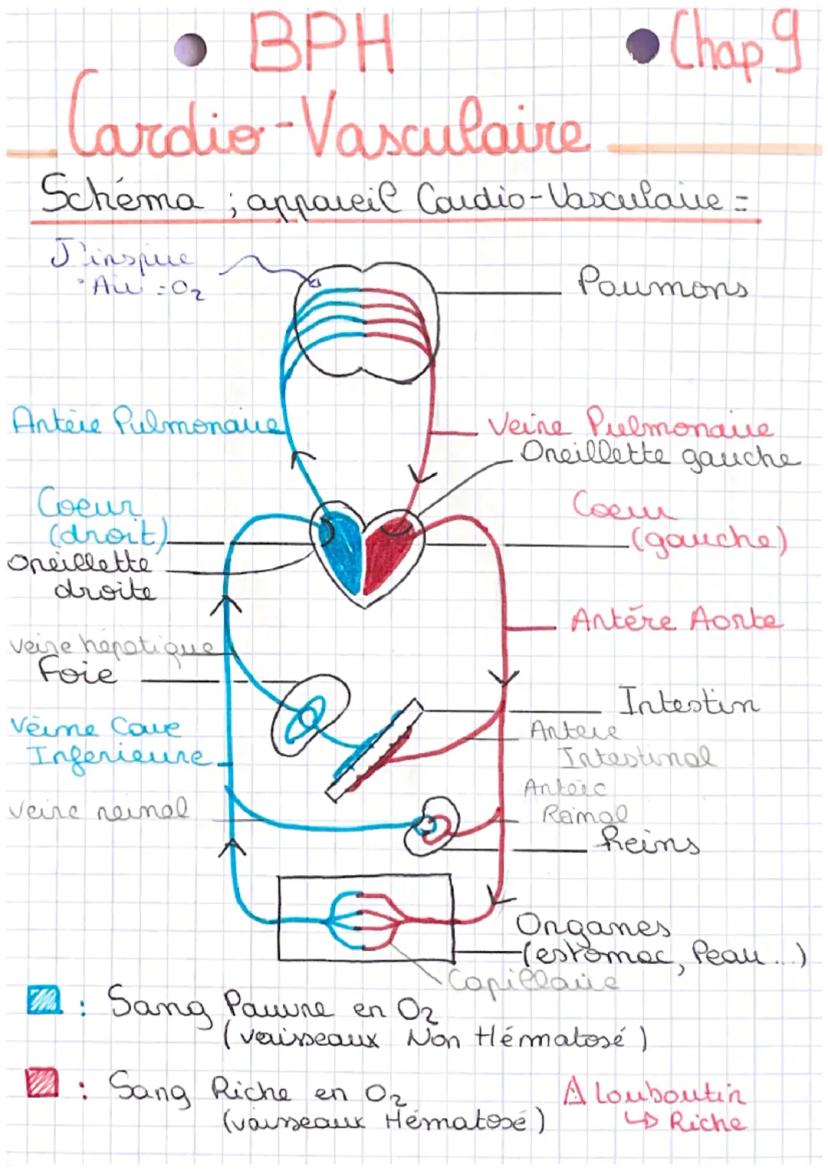 BPH
Chap 9
Cardio-Vasculaire
Schéma ; appareil Cardio-Vasculaire =
J'inspire
Air = O2
Poumons
Antèie Pulmonaire
Veine Pulmonaire
Oreillette gauche
Coeur
(droit)
Coeur
(gauche)
Oreillette
droite
Antére Aorte
Veine hépatique
Foie
Intestin
Véine Cave
Inferieure
Antere
Intestinal
Antèic
Rainal
Veine reinal
Reins
Organes
(estomac, Peau...)
Capillaire
: Sang Pauvre en O2
(vaisseaux Non Hématosé)
: Sang Riche en O2
(vaisseaux Hématosé)
⚠ Louboutin
↳ Riche